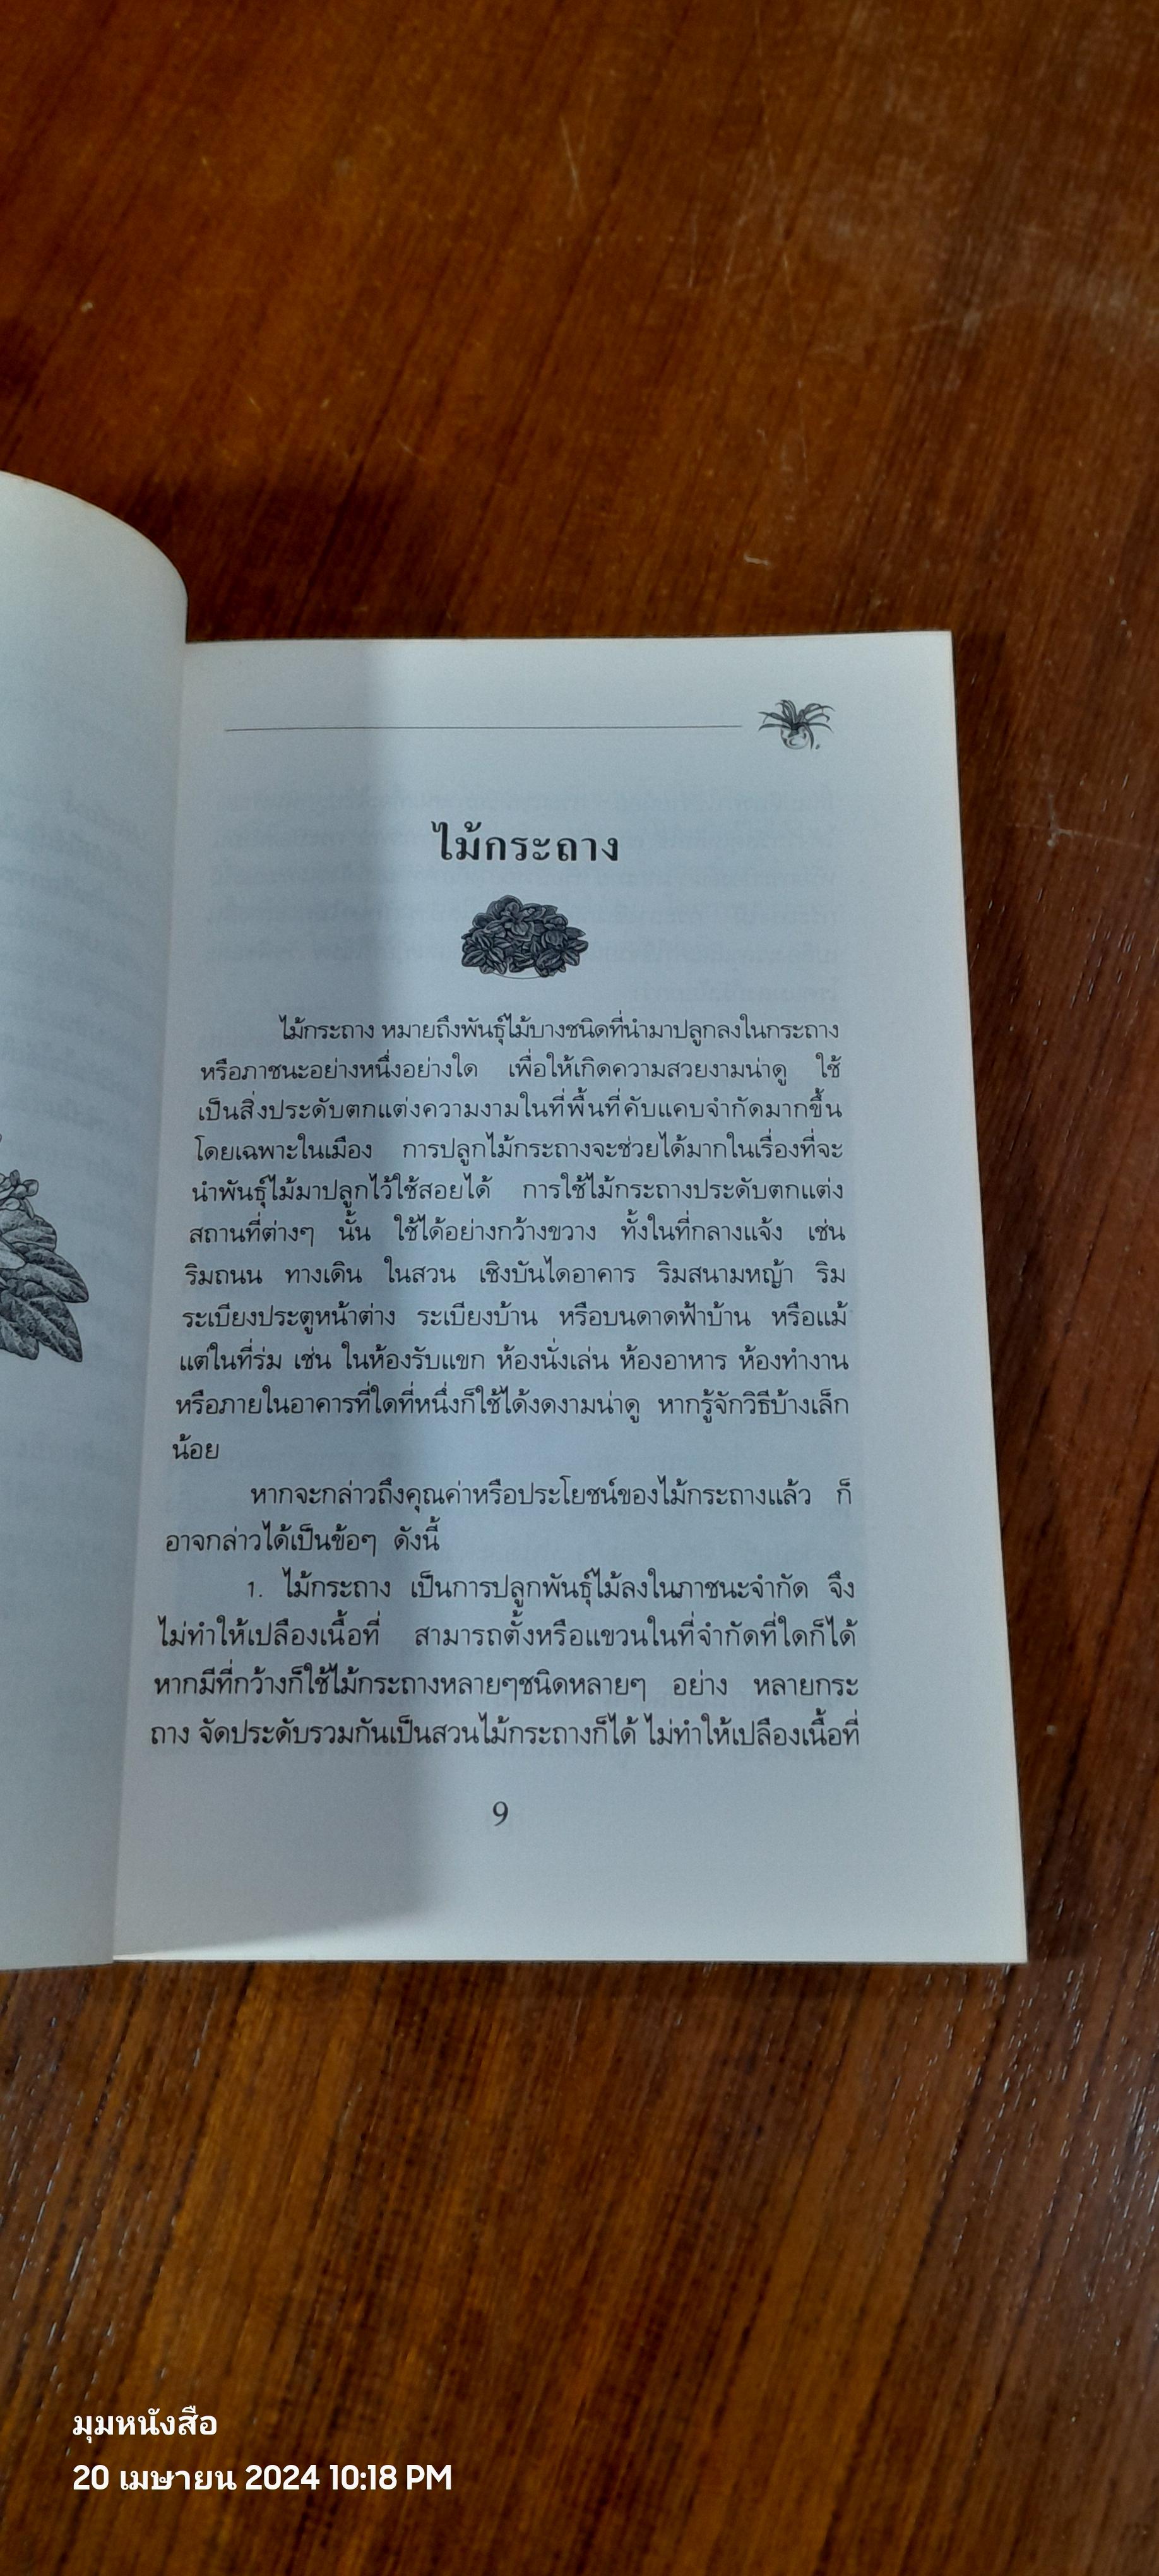 ไม้กระถาง
ไม้กระถาง หมายถึงพันธุ์ไม้บางชนิดที่นำมาปลูกลงในกระถาง
หรือภาชนะอย่างหนึ่งอย่างใด เพื่อให้เกิดความสวยงามน่าดู ใช้
เป็นสิ่งประดับตกแต่งความงามในที่พื้นที่คับแคบจำกัดมากขึ้น
โดยเฉพาะในเมือง การปลูกไม้กระถางจะช่วยได้มากในเรื่องที่จะ
นำพันธุ์ไม้มาปลูกไว้ใช้สอยได้ การใช้ไม้กระถางประดับตกแต่ง
สถานที่ต่างๆ นั้น ใช้ได้อย่างกว้างขวาง ทั้งในที่กลางแจ้ง เช่น
ริมถนน ทางเดิน ในสวน เชิงบันไดอาคาร ริมสนามหญ้า ริม
ระเบียงประตูหน้าต่าง ระเบียงบ้าน หรือบนดาดฟ้าบ้าน หรือแม้
แต่ในที่ร่ม เช่น ในห้องรับแขก ห้องนั่งเล่น ห้องอาหาร ห้องทำงาน
หรือภายในอาคารที่ใดที่หนึ่งก็ใช้ได้งดงามน่าดู หากรู้จักวิธีบ้างเล็ก
น้อย
หากจะกล่าวถึงคุณค่าหรือประโยชน์ของไม้กระถางแล้ว ก็
อาจกล่าวได้เป็นข้อๆ ดังนี้
1. ไม้กระถาง เป็นการปลูกพันธุ์ไม้ลงในภาชนะจำกัด จึง
ไม่ทำให้เปลืองเนื้อที่ สามารถตั้งหรือแขวนในที่จำกัดที่ใดก็ได้
หากมีที่กว้างก็ใช้ไม้กระถางหลายๆชนิดหลายๆ อย่าง หลายกระ
ถาง จัดประดับรวมกันเป็นสวนไม้กระถางก็ได้ ไม่ทำให้เปลืองเนื้อที่
9
มุมหนังสือ
20 เมษายน 2024 10:18 PM